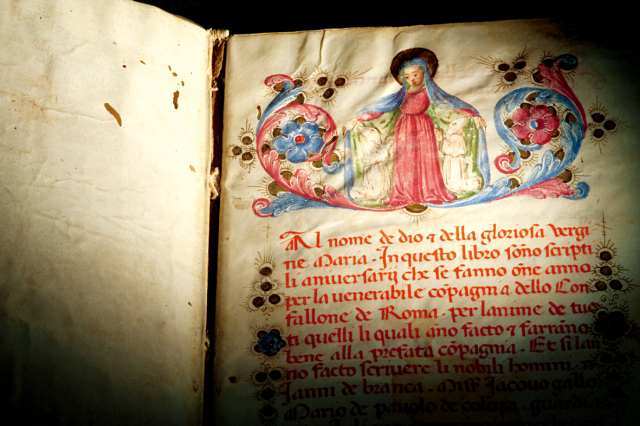 Al nome de dio & della gloriosa vergi
ne Maria. In questo libro sõno scripti
li aniuersarij che se fanno õne anno
per la uenerabile cõpagnia dello Con
fallone de Roma. per lanime de tuc
ti quelli li quali ãno facto & farrãno
bene alla prefata cõpagnia. Et si lan
no facto scriuere li nobili homini.
Ianni de branca. Miss Iacouo gallo
Mario de pauolo de